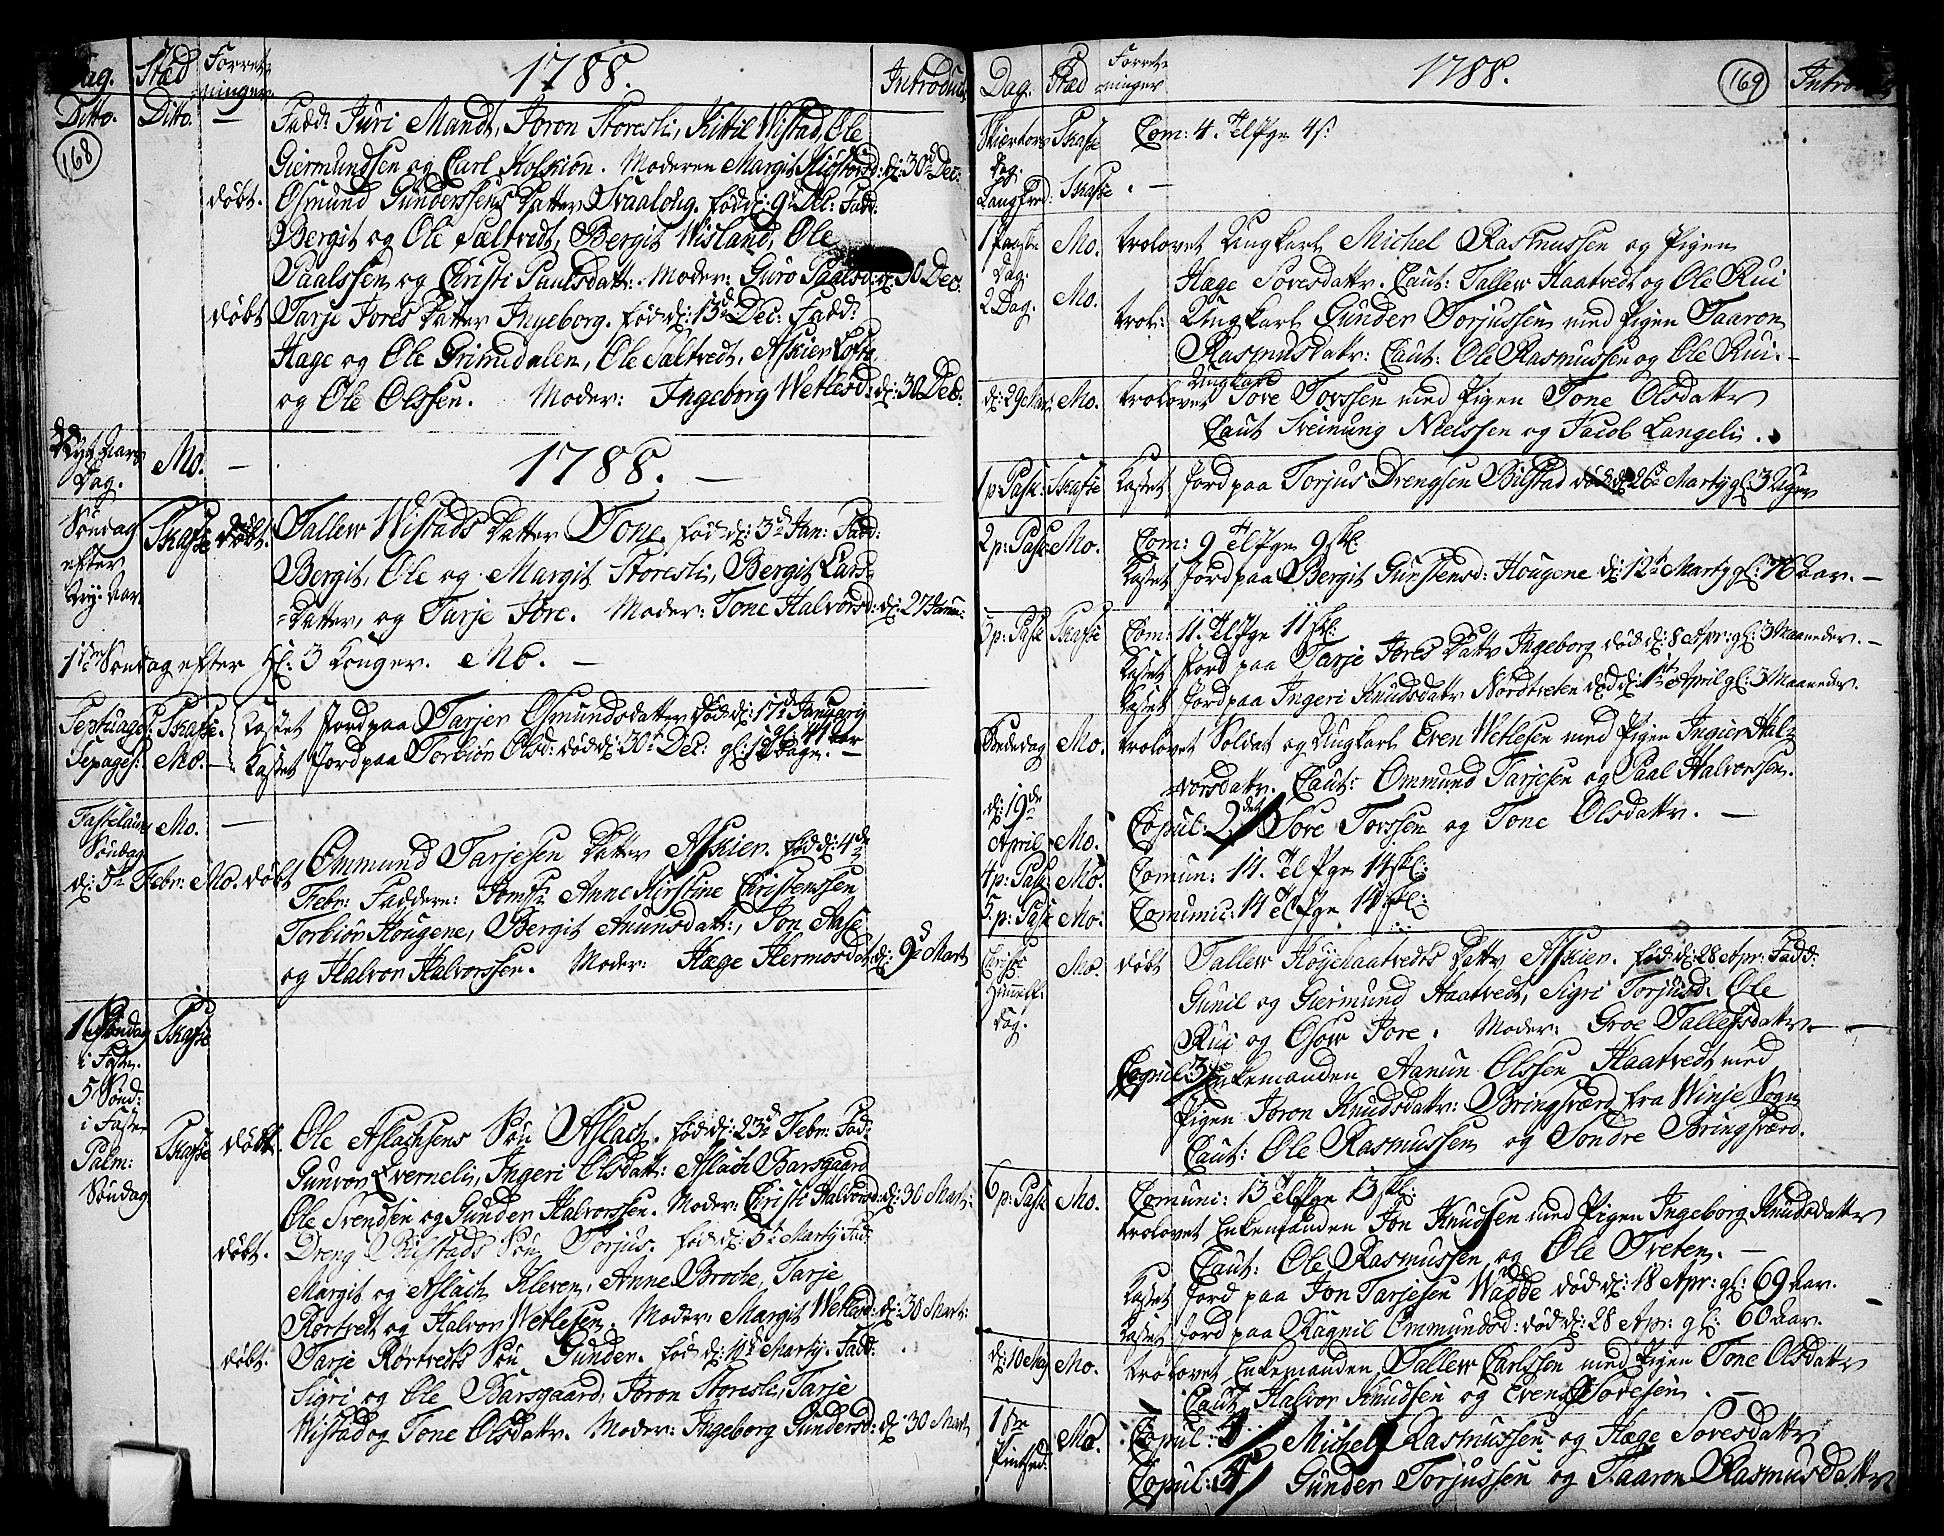 Dag. Stæd Forretninger 1788. Introduc
Ditto. Ditto. — Fadd: Juri Mandt, Joron Storesli, Kittil Wistad, Ole
168
Giermundsen og Carl Moderen Margit d: 30 Dec:
døbt. Osmund Gunderssens Datter Svaalaug. fød d: 9 Dec: Fadd:
Bergit og Ole Saltvedt, Bergit Wisland, Ole
Paalssen og Christi Paulsdatt: Moder: Guro Paalsd: d: 30 Dec:
døbt Tarje Jores Datter Ingeborg. fød d: 13 Dec: Fadd:
Hage og Ole Grimedalen, Ole Saltvedt, Askier
og Ole Olssen. Moder: Ingeborg Wetlesd: d: 30 Dec:
Nyt Aars Dag. Mo. — 1788. —
Søndag efter Ny: Aar Skafse døbt. Tallew Wistads Datter Tone. fød d: 3 Jan: Fadd:
Bergit, Ole og Margit Storesli, Bergit Lars-
=Datter, og Tarje Jore. Moder: Tone Halvorsd: d: 27 Janu:
1ste Søndag efter H: 3 Konger. Mo. —
Septuages: Skafse. Kastet Jord paa Tarjer Osmundsdatter død d: 17 January
gl: 41 aar
Sexages: Mo. — Kastet Jord paa Torbiør Olsd: død d: 30 Dec: gl: 12 Uger. —
Fastelauns Søndag Mo. —
d: 5te Febr: Mo. døbt Ommund Tarjesen Datter Askier. fød d: 4de
Febr: Faddere: Jomfr: Anne Kirstine Christenssen
Torbiør Hougene, Bergit Anunsdatt:, Jon Aase
og Halvor Halvorssen. Moder: Hæge Hermosdat: d: 9 Mart
1 Søndag i Fasten Skafse
5 Sønd: i Faste
Palm: Søndag Skafse døbt. Ole Aslachsens Søn Aslach. fød d: 23 Febr: Fad:
Gunvor Evernelis, Ingeri Olsdatt: Aslach Barsgaard
Ole Svendsen og Gunder Halvorssen. Moder: Christi Halvorsd: d: 30 Mart:
døbt. Dreng Bilstads Søn Torjus. fød d: 5 Marty Fad:
Margit og Aslach Kleven, Anne Broche, Tarje
Rørtvett og Halvor Wetlesen. Moder: Margit Wetland: d: 30 Mart:
døbt. Tarje Rørtvedts Søn Gunder. fød d: 10 Marty. Fadd:
Sigri og Ole Barsgaard, Joron Storesli, Tarje
Wistad og Tone Olsdattr. Moder: Ingeborg Gundersd: d: 30 Mart
Dag. Stæd Forretninger 1788. 169 Introd
Skiertors Dag: Skafse Com: 4. 4 s:
Langfred: Skafse. —
1 Paaske Dag: Mo. trolovet Ungkarl Michel Rasmussen og Pigen
Hæge Sovesdattr. Caut: Tallew Haatvedt og Ole Rui
2 Dag: Mo. trol: Ungkarl Gunder Torjussen med Pigen Taaron
Rasmusdattr: Caut: Ole Rasmussen og Ole Rui. —
d: 29 Mart: Mo. trolovet Ungkarl Tore Torssen med Pigen Tone Olsdattr
Caut Sveinung Nielssen og Jacob Langelis.
1 p: Pask: Skafse Kastet Jord paa Torjus Drengsen Bilstad død d: 26 Marty gl: 3 Uger
2 p: Pask: Mo. Com: 9 9 skl:
Kastet Jord paa Bergit Gunstensd: Hougene d: 12 Marty gl: 76 Aar. —
3 p: Pask Skafse Com: 11. 11 skl:
Kastet Jord paa Tarje Jores Dattr Ingeborg død d: 8 Apr: gl: 3 Maaneder. —
Kastet Jord paa Ingeri Knudsdattr Nordtveten død d: 1st April gl: 3 Maaneder.
Bededag Mo. trolovet Soldat og Ungkarl Even Wetlesen med Pigen Ingier Hal-
vorsdattr. Caut: Ommund Tarjesen og Paal Halvorssen.
d: 19de April Mo. Copul: 2det Tore Torssen og Tone Olsdattr. —
4 p: Pask: Mo. Comun: 14. 14 skl:
5. p: Pask Mo. Comunic: 14 14 skl:
Christi Himmelf: Dag. Mo. døbt Tallew Høyehaatvedts Dattr Askier. fød d: 28 Apr: Fadd:
Gunil og Giermund Haatvedt, Sigri Torjusd: Ole
Rui og Osow Jore. Moder: Groe Tallefsdattr. —
Copul: 3 Enkemanden Aanun Olssen Haatvedt med
Pigen Joron Knudsdattr: Bringsværd fra Winje Sogn
Caut: Ole Rasmussen og Sondre Bringsværd.
6 p: Pask Mo. Comuni: 13 13 skl:
trolovet Enkemanden Jon Knudsen med Pigen Ingeborg Knudsdattr
Caut: Ole Rasmussen og Ole Tveten. —
Kastet Jord paa Jon Tarjesen Wadde død d: 18 Apr: gl: 69 Aar.
Kastet Jord paa Ragnil Ommundsd: død d: 28 Apr: gl: 60 Aar.
d: 10 May Mo. trolovet Enkemanden Tallew Carlssen med Pigen Tone Olsdattr
Caut Halvor Knudsen og Even Sovesen. —
1ste Pintsed: Mo. Copul: 4. Michel Rasmussen og Hæge Sovesdattr
Copul: Gunder Torjussen og Taaron Rasmusdattr